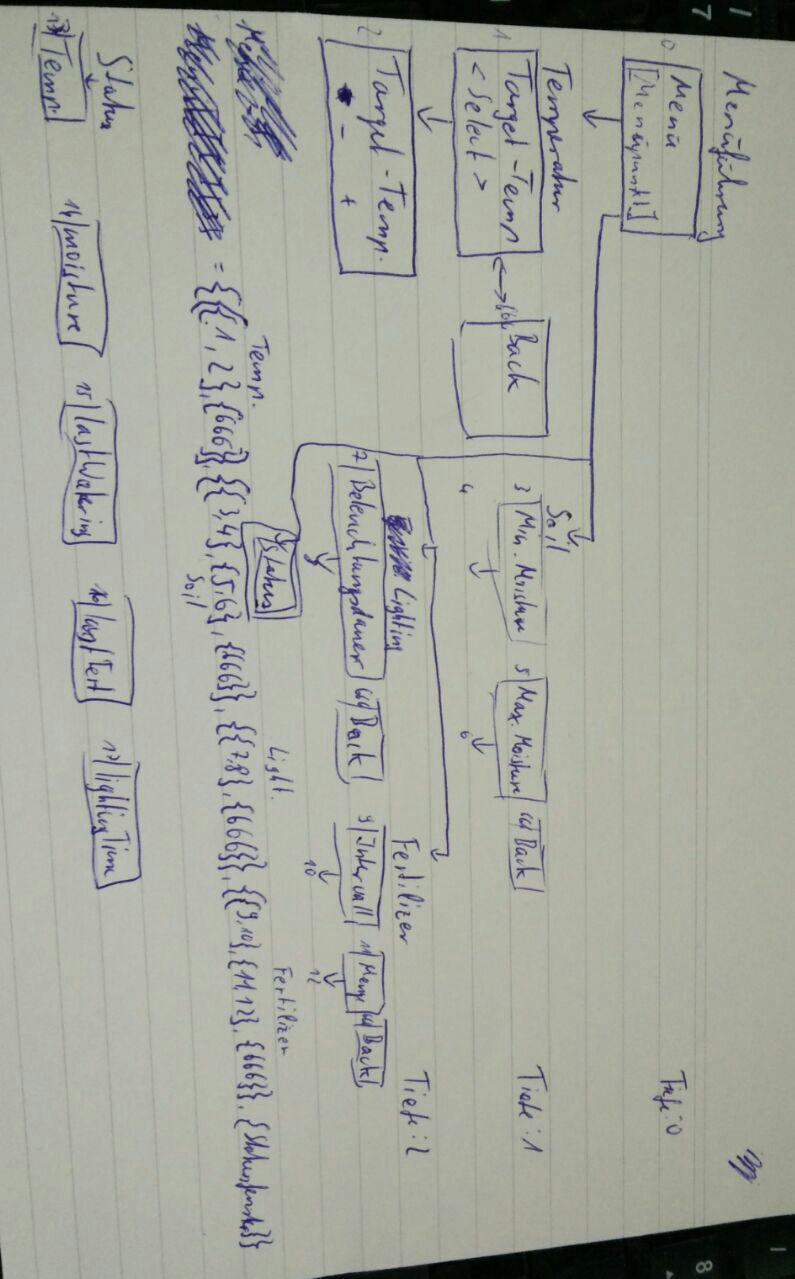 Menüführung
0 Menü
[Menüpunkt]
Tiefe: 0
Temperatur
1 Target-Temp
< Select >
666 Back
Soil
3 Min. Moisture
5 Max. Moisture
666 Back
Tiefe: 1
4
6
2 Target-Temp.
- +
Lighting
Fertilizer
Tiefe: 2
7 Beleuchtungsdauer
666 Back
9 Intervall
11 Menge
666 Back
8
10
12
Status
Temp.
Light.
Fertilizer
= {{{1,2},{666}},{{3,4},{5,6},{666}},{{7,8},{666}},{{9,10},{11,12},{666}},{Statusfenster}}
Soil
Status
13 Temp.
14 moisture
15 lastWatering
16 lastFert
17 lightingTime
7
8